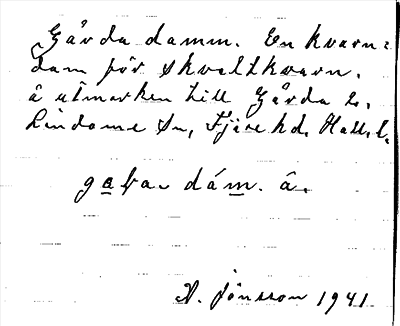 Gårda damm. En kvarn=
dam för skvaltkvarn.
å utmarken till Gårda 2.
Lindome Sn, Fjäre hd. Hall. l.
dám. â.
A. Jönsson 1941.